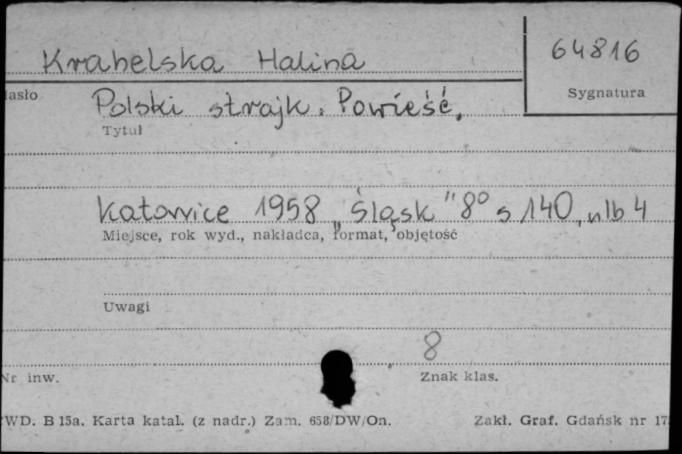 Krahelska Halina
64816
Sygnatura
Hasło
Polski strajk. Powieść.
Tytuł
Katowice 1958 „Śląsk" 8° s 140, nlb 4
Miejsce, rok wyd., nakładca, format, objętość
Uwagi
8
Nr inw.
Znak klas.
WD. B 15a. Karta katal. (z nadr.) Zam. 658/DW/On.
Zakł. Graf. Gdańsk nr 17